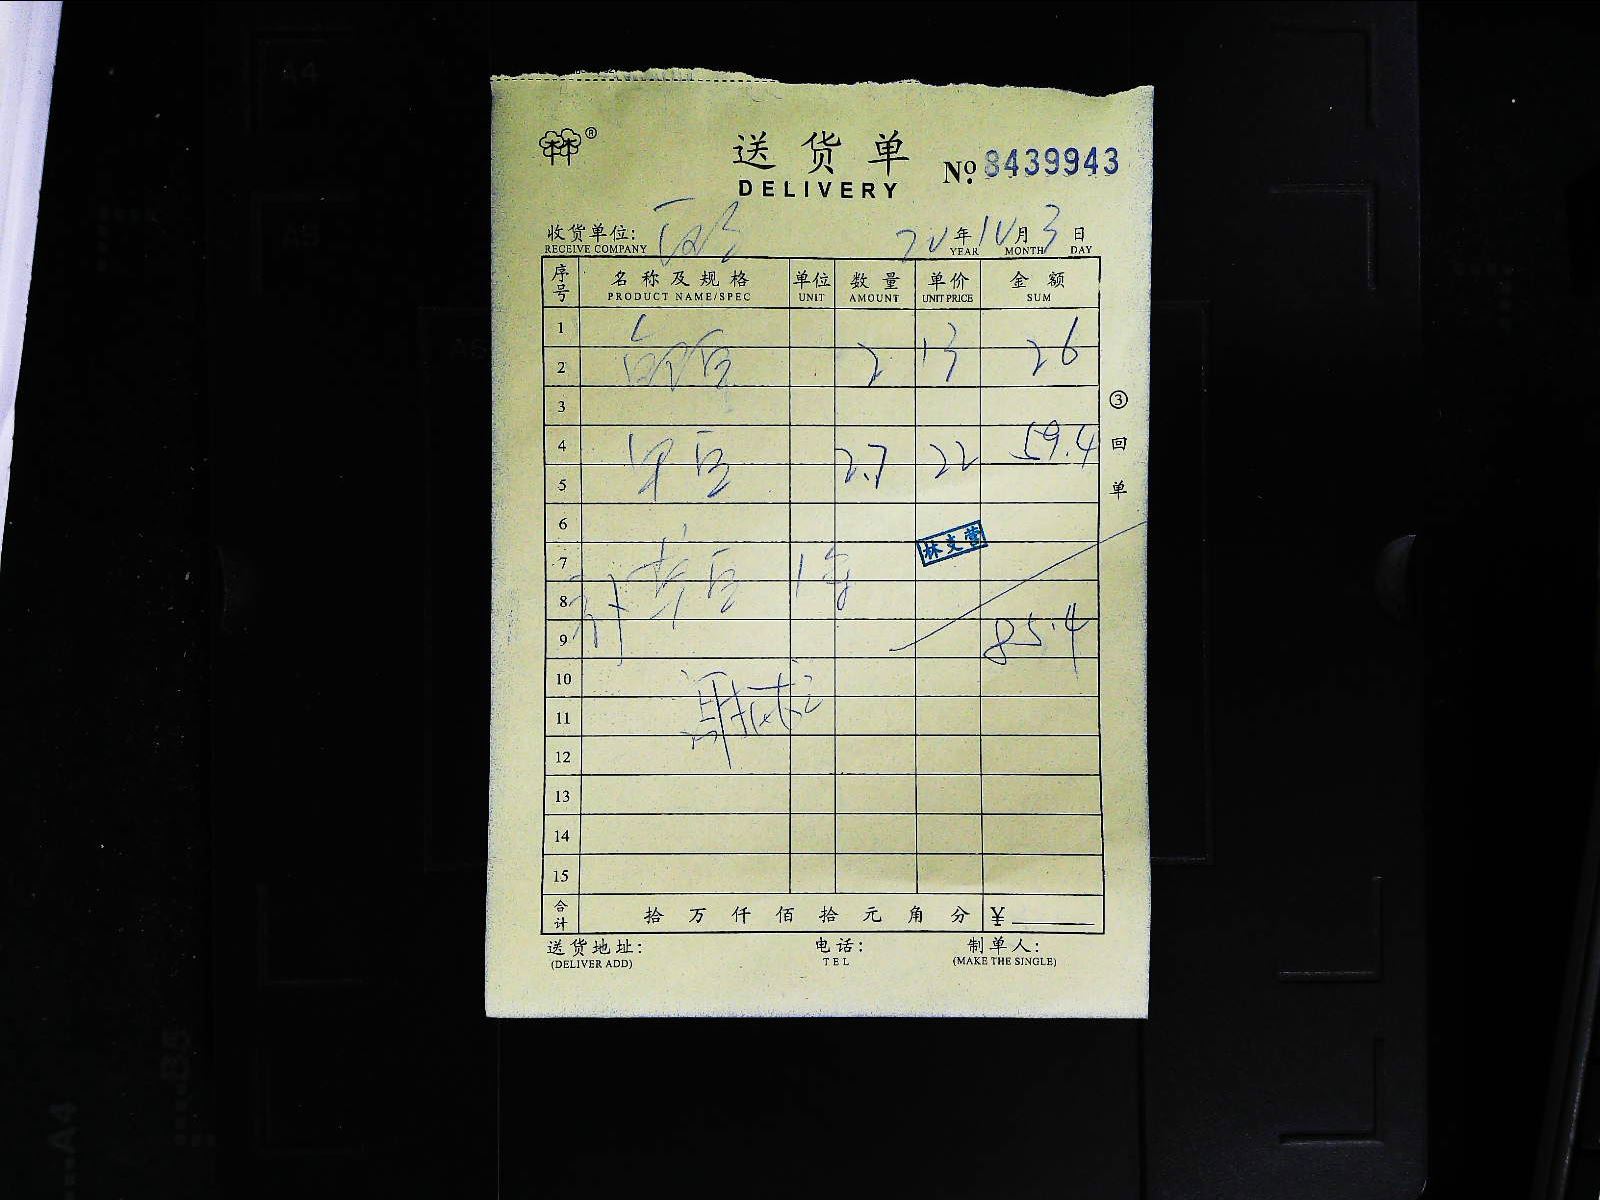 林®
送货单
DELIVERY
No. 8439943
收货单位:
RECEIVE COMPANY
20年10月3日
YEAR MONTH DAY
序号 名称及规格 单位 数量 单价 金额
PRODUCT NAME/SPEC UNIT AMOUNT UNIT PRICE SUM
1
2 2 13 26
3
4 59.4
5 2.7 22
6
林支营
7
8
9 85.4
10
11
12
13
14
15
合计 拾万仟佰拾元角分 ¥
送货地址: 电话: 制单人:
(DELIVER ADD) TEL (MAKE THE SINGLE)
③回单
A4
A5
A4
B5